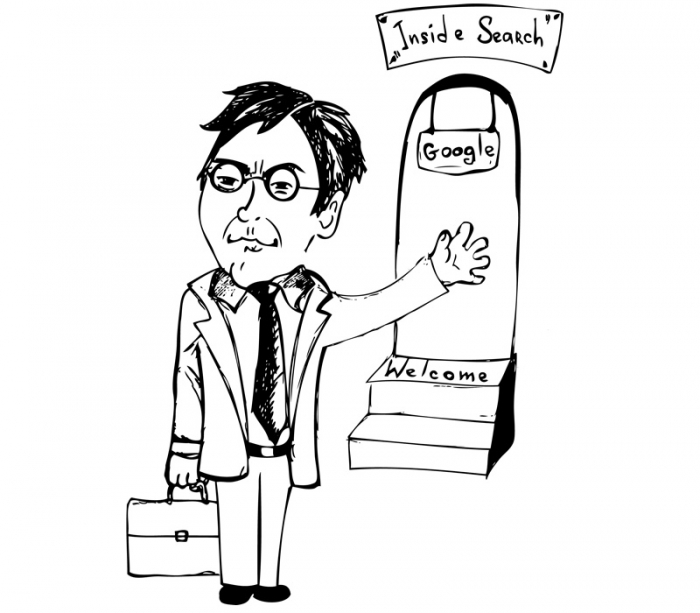 Inside Search"
Google
Welcome